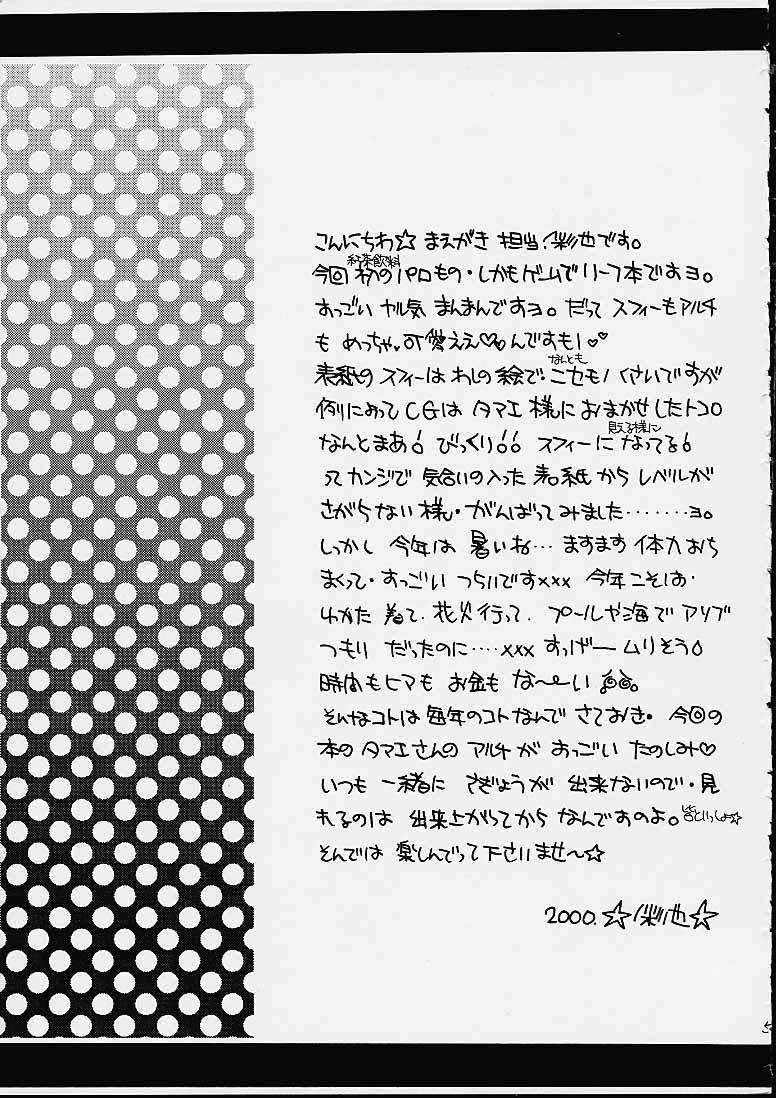 こんにちわ☆ まえがき 担当、彩也です。
紅茶飲料
今回 初のパロもの・しかもゲームでリーフ本ですヨ。
すっごい ヤル気 まんまんですヨ。だって スフィーもアルチ
も めっちゃ、可愛ええ♡んですもん♡♡
なんとも
表紙の スフィーは わしの絵で・ニセモノくさいですが
例によって CGは タマエ 様に おまかせしたトコロ
見える様に
なんとまあ! びっくり!! スフィーに なってる!
ってカンジで 気合いの入った 表紙 から レベルが
さがらない 様・がんばってみました‥‥‥‥ヨ。
しっかし 今年は 暑いね… ますます 体力おち
まくって・すっごい つらいですxxx 今年こそは・
ゆかた 着て、花火行って、プールや海で アソブ
つもり だったのに‥‥xxx すっげー ムリそう
時間もヒマも お金も な〜い
そんなコトは 毎年のコトなんで さておき・ 今回の
本の タマエさんの アルチが すっごい たのしみ♡
いつも 一緒に さぎょうが 出来ないので・見
れるのは 出来上がってから なんですのよ。皆といっしょ☆
そんでは 楽しんでって下さいませ〜☆
2000. ☆彩也☆